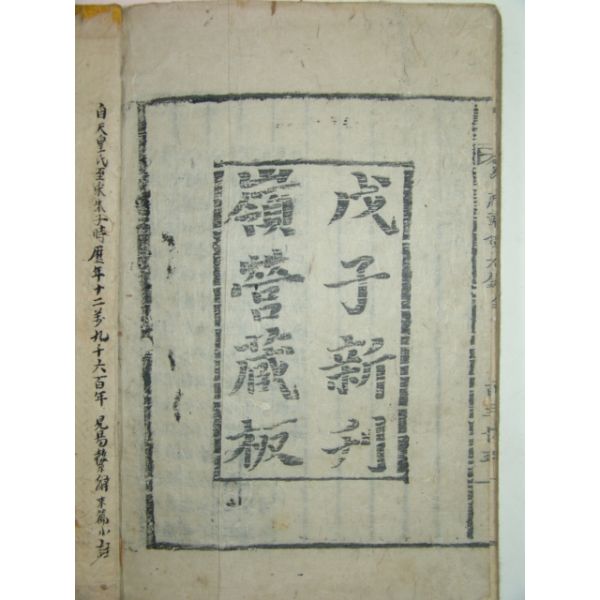 戊子新刊
嶺營藏板
自天皇氏至宋朱子時曆年十二萬九千六百年 見易末篇小註